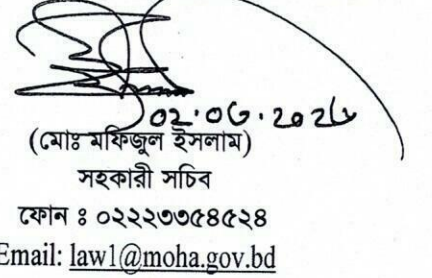 (মোঃ মফিজুল ইসলাম)
সহকারী সচিব
ফোন ঃ ০২২২৩৩৫৪৫২৪
Email: law1@moha.gov.bd